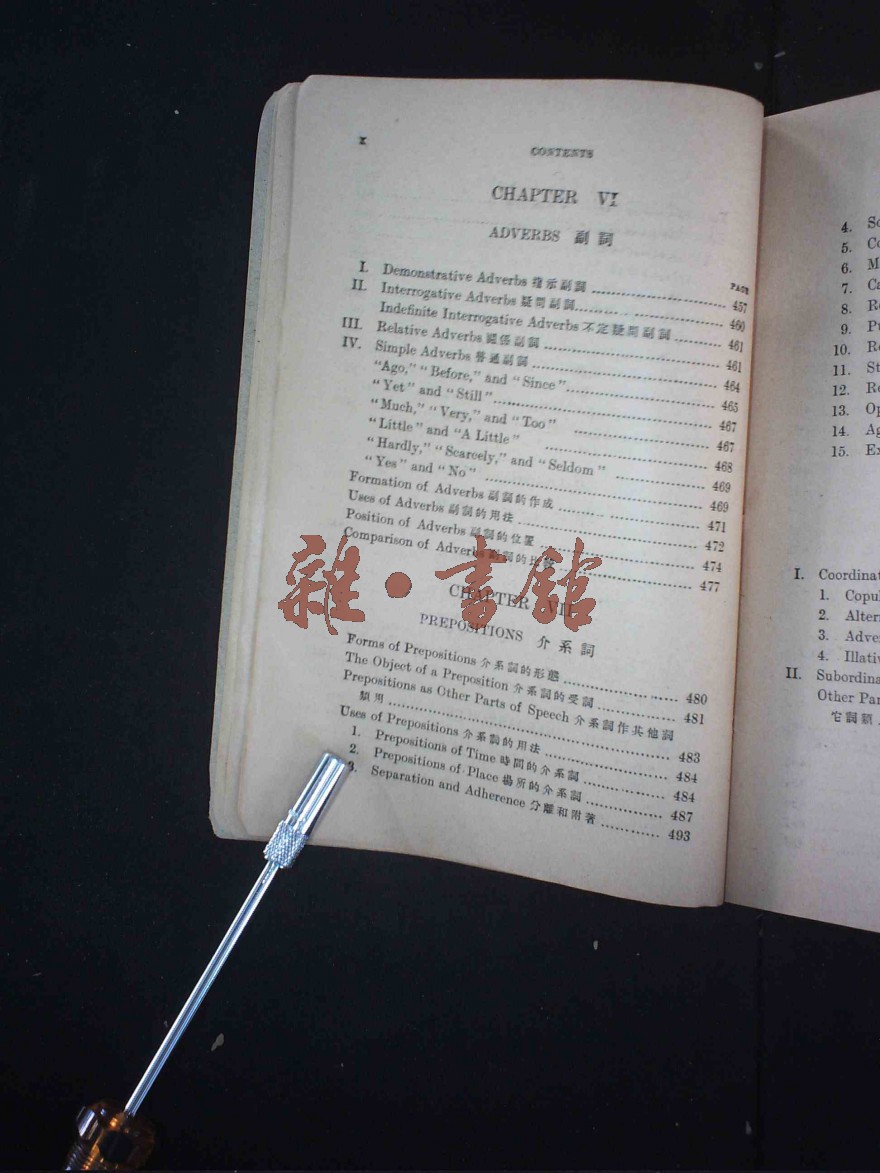 x
CONTENTS
CHAPTER VI
ADVERBS 副詞
PAGE
I. Demonstrative Adverbs 指示副詞 457
II. Interrogative Adverbs 疑問副詞 460
Indefinite Interrogative Adverbs 不定疑問副詞 461
III. Relative Adverbs 關係副詞 461
IV. Simple Adverbs 普通副詞 464
“Ago,” “Before,” and “Since” 465
“Yet” and “Still” 467
“Much,” “Very,” and “Too” 467
“Little” and “A Little” 468
“Hardly,” “Scarcely,” and “Seldom” 469
“Yes” and “No” 469
Formation of Adverbs 副詞的作成 471
Uses of Adverbs 副詞的用法 472
Position of Adverbs 副詞的位置 474
Comparison of Adverbs 副詞的比較 477
雜·書館
CHAPTER VII
PREPOSITIONS 介系詞
Forms of Prepositions 介系詞的形態 480
The Object of a Preposition 介系詞的受詞 481
Prepositions as Other Parts of Speech 介系詞作其他詞
類用 483
Uses of Prepositions 介系詞的用法 484
1. Prepositions of Time 時間的介系詞 484
2. Prepositions of Place 場所的介系詞 487
3. Separation and Adherence 分離和附著 493
4. So
5. Co
6. M
7. Ca
8. Re
9. Pu
10. Re
11. St
12. Re
13. Op
14. Ag
15. Ex
I. Coordinat
1. Copul
2. Alter
3. Adve
4. Illati
II. Subordina
Other Par
它詞類